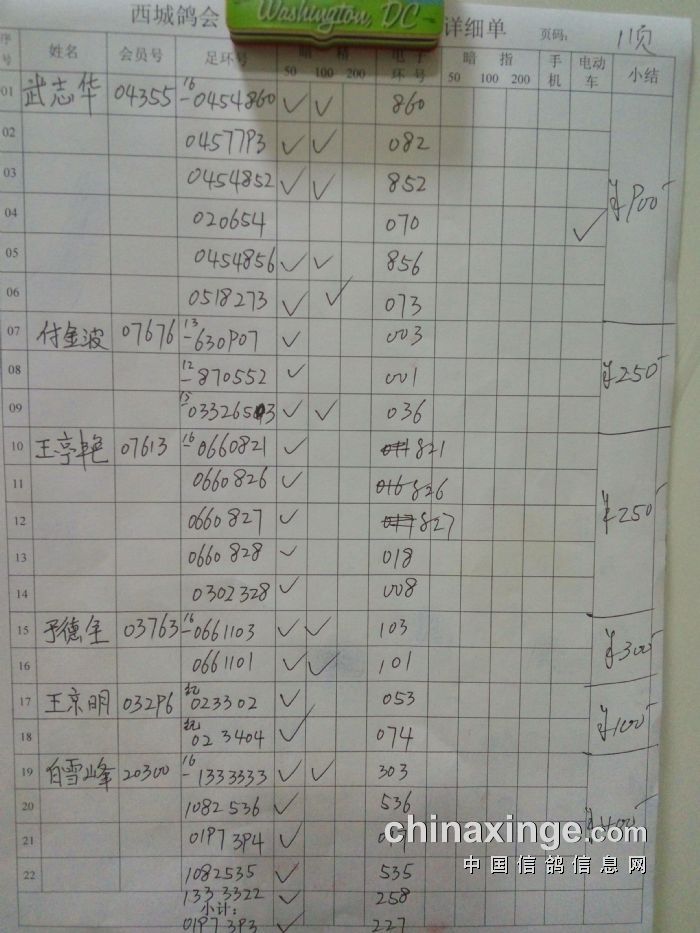 Washington, DC
西城鸽会 详细单 页码: 11页
序号 姓名 会员号 足环号 暗 精 电子环号 暗 指 手机 电动车 小结
50 100 200 50 100 200
01 武志华 04355 16-0454860 ✓ ✓ 860 ¥900-
02 0457793 ✓ ✓ 082
03 0454852 ✓ ✓ 852
04 020654 070 ✓
05 0454856 ✓ ✓ 856
06 0518273 ✓ ✓ 073
07 付金波 07676 13-630907 ✓ 003 ¥250-
08 12-870552 ✓ 001
09 ✓ ✓ 036
10 07613 16-0660821 ✓ 821 ¥250-
11 0660826 ✓ 826
12 0660827 ✓ 827
13 0660828 ✓ 018
14 0302328 ✓ 008
15 德全 03763 16-0661103 ✓ ✓ 103 ¥300-
16 0661101 ✓ ✓ 101
17 王京明 03296 023302 ✓ 053 ¥100-
18 023404 ✓ 074
19 白雪峰 20300 16-1333333 ✓ ✓ 303
20 1082536 ✓ 536
21 0197394 ✓
22 1082535 ✓ 535
1333322 ✓ 258
小计:
0197393 ✓ 227
chinaxinge.com
中国信鸽信息网